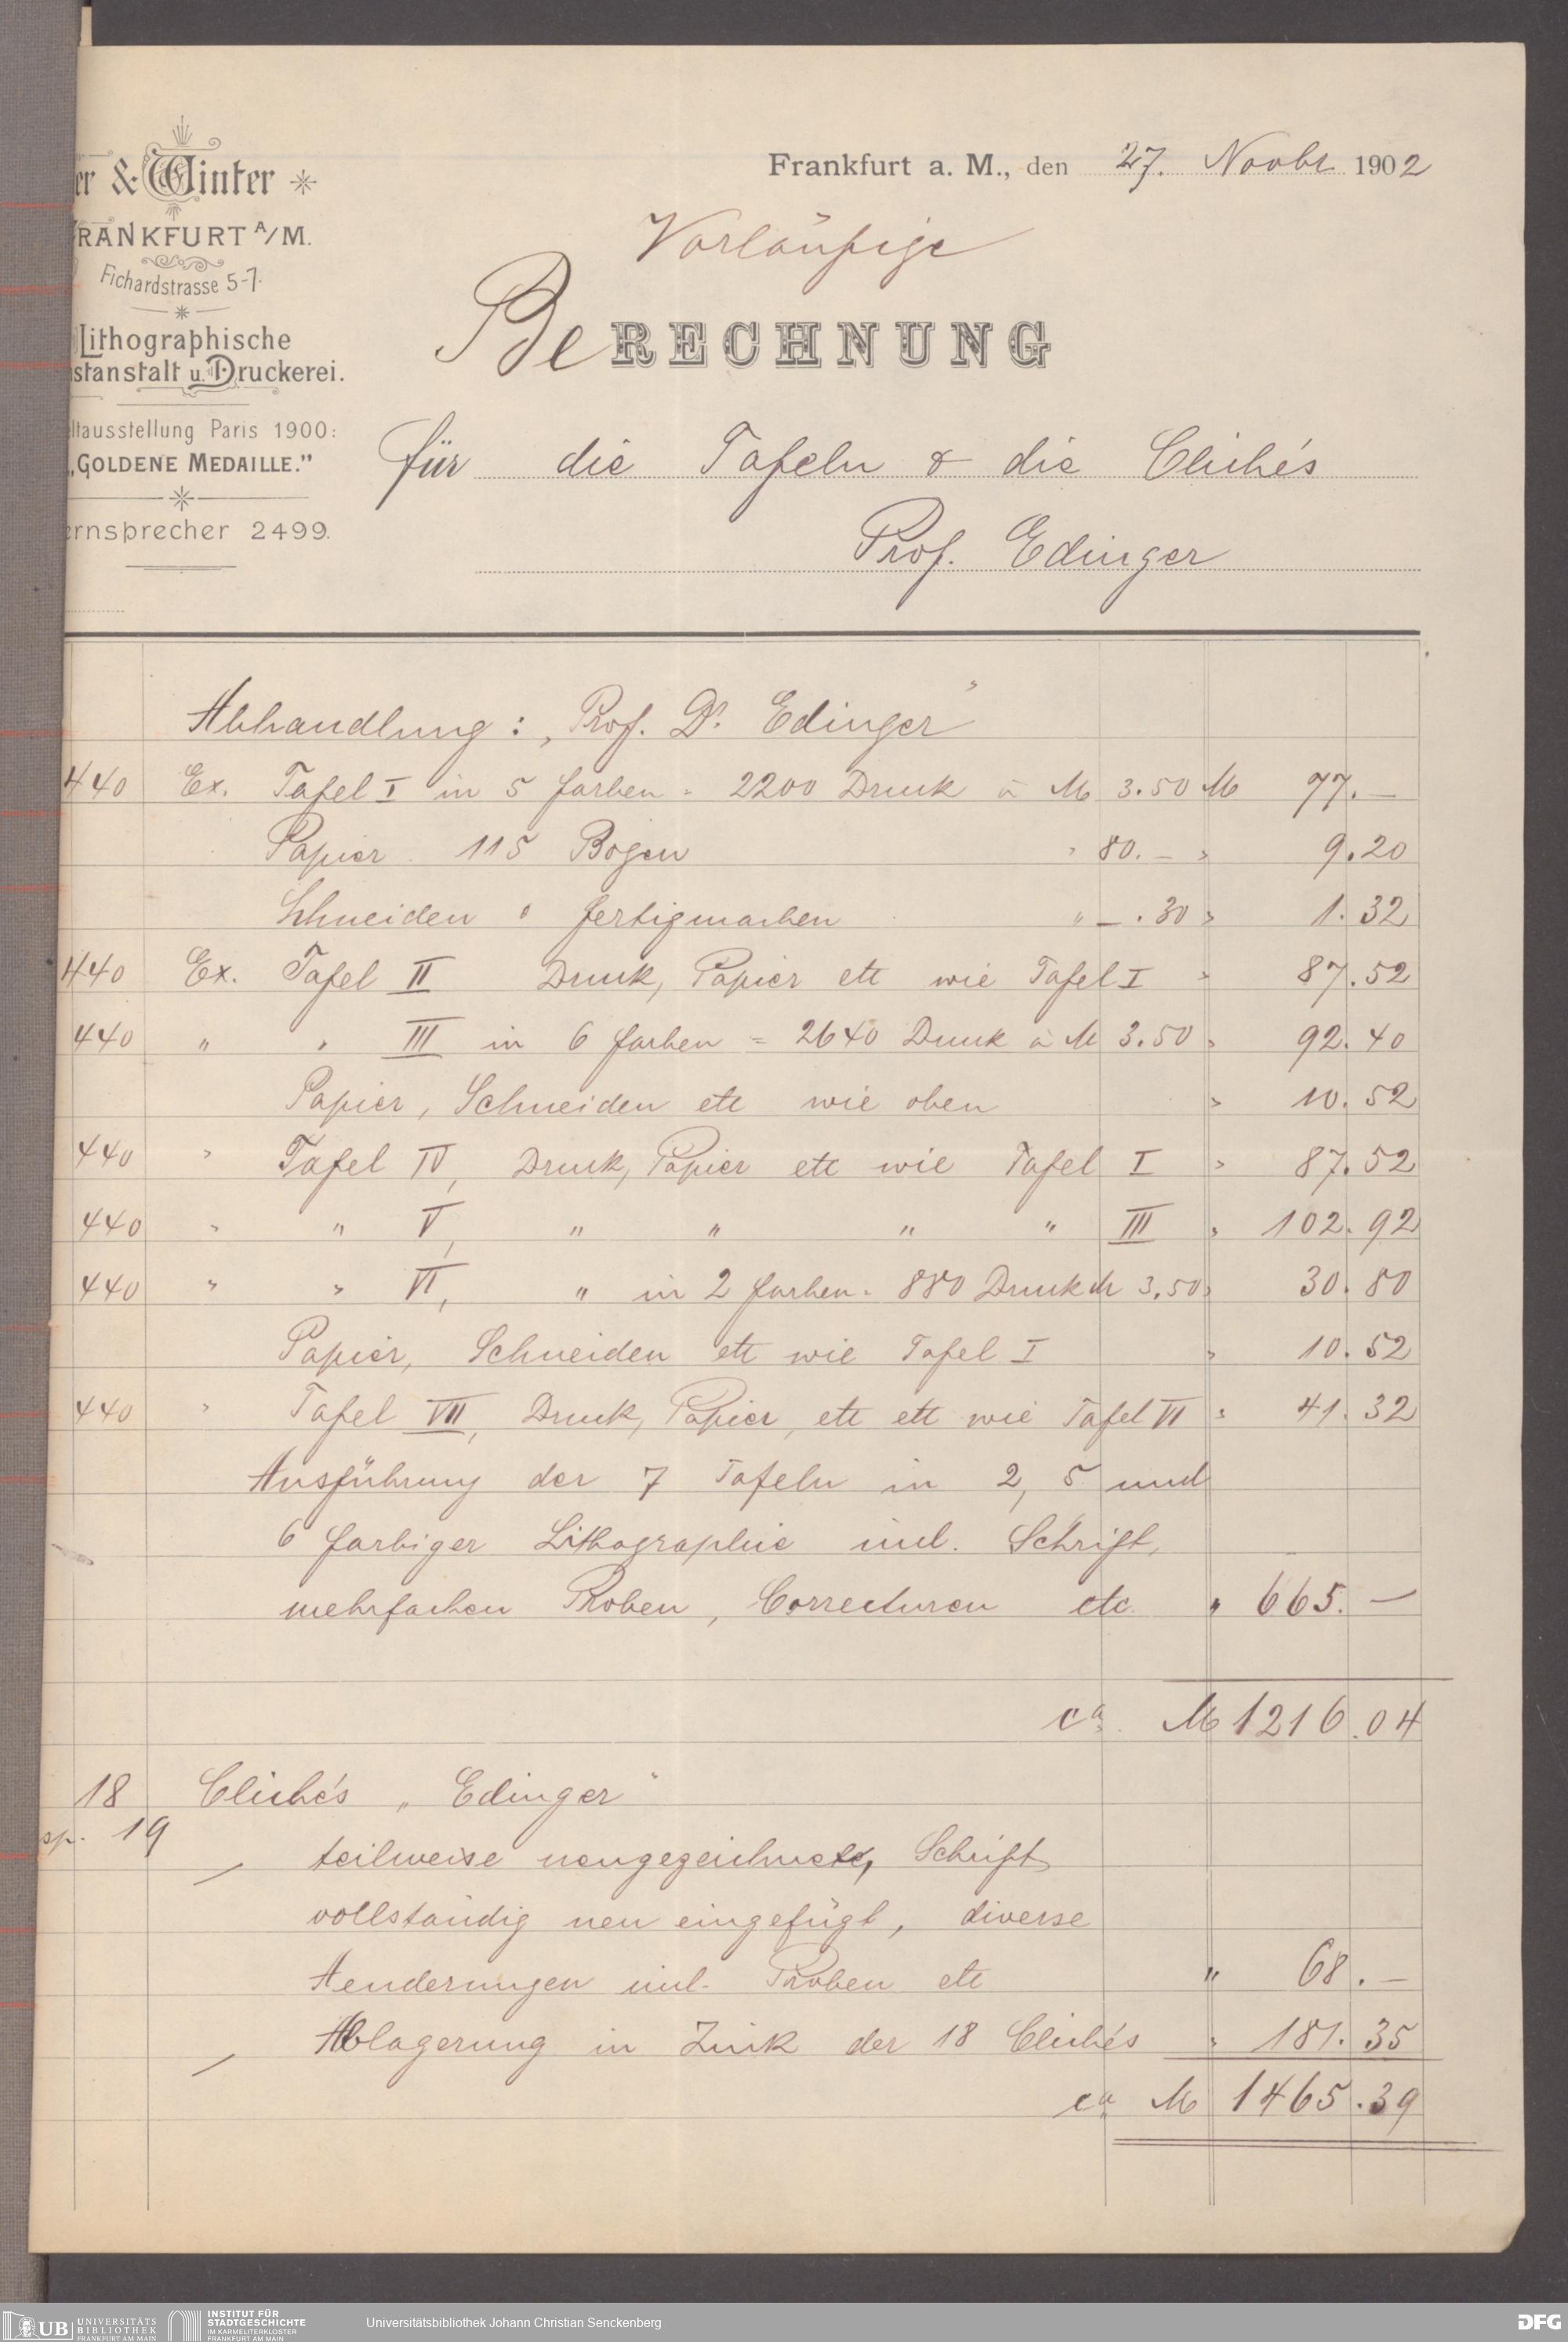 er & Winter
FRANKFURT A/M.
Fichardstrasse 5-7.
Lithographische
stanstalt u. Druckerei.
ltausstellung Paris 1900:
„GOLDENE MEDAILLE."
ernsprecher 2499.
Frankfurt a. M., den 27. Novbr 1902
Vorläufige
BeRECHNUNG
für die Tafeln & die Clichés
Prof. Edinger
Abhandlung: „Prof. Dr. Edinger"
440 Ex. Tafel I in 5 farben = 2200 Druck à M 3.50 M 77.—
Papier 115 Bogen " 80.— " 9.20
Schneiden & fertigmachen " —.30 " 1.32
440 Ex. Tafel II Druck, Papier etc wie Tafel I " 87.52
440 " " III in 6 farben = 2640 Druck à M 3.50 " 92.40
Papier, Schneiden etc wie oben " 10.52
440 " Tafel IV, Druck, Papier etc wie Tafel I " 87.52
440 " " V, " " " " III " 102.92
440 " " VI, " in 2 farben = 880 Druck M 3.50 " 30.80
Papier, Schneiden etc wie Tafel I " 10.52
440 " Tafel VII, Druck, Papier, etc etc wie Tafel VI " 41.32
Ausführung der 7 Tafeln in 2, 5 und
6 farbiger Lithographie incl. Schrift,
mehrfachen Proben, Correcturen etc. " 665.—
ca. M 1216.04
18 Clichés „Edinger"
sp. 19
teilweise neugezeichnete, Schrift
vollständig neu eingefügt, diverse
Aenderungen incl. Proben etc " 68.—
Ablagerung in Zink der 18 Clichés " 181.35
ca M 1465.39
UB UNIVERSITÄTS
BIBLIOTHEK
FRANKFURT AM MAIN
INSTITUT FÜR
STADTGESCHICHTE
IM KARMELITERKLOSTER
FRANKFURT AM MAIN
Universitätsbibliothek Johann Christian Senckenberg
DFG